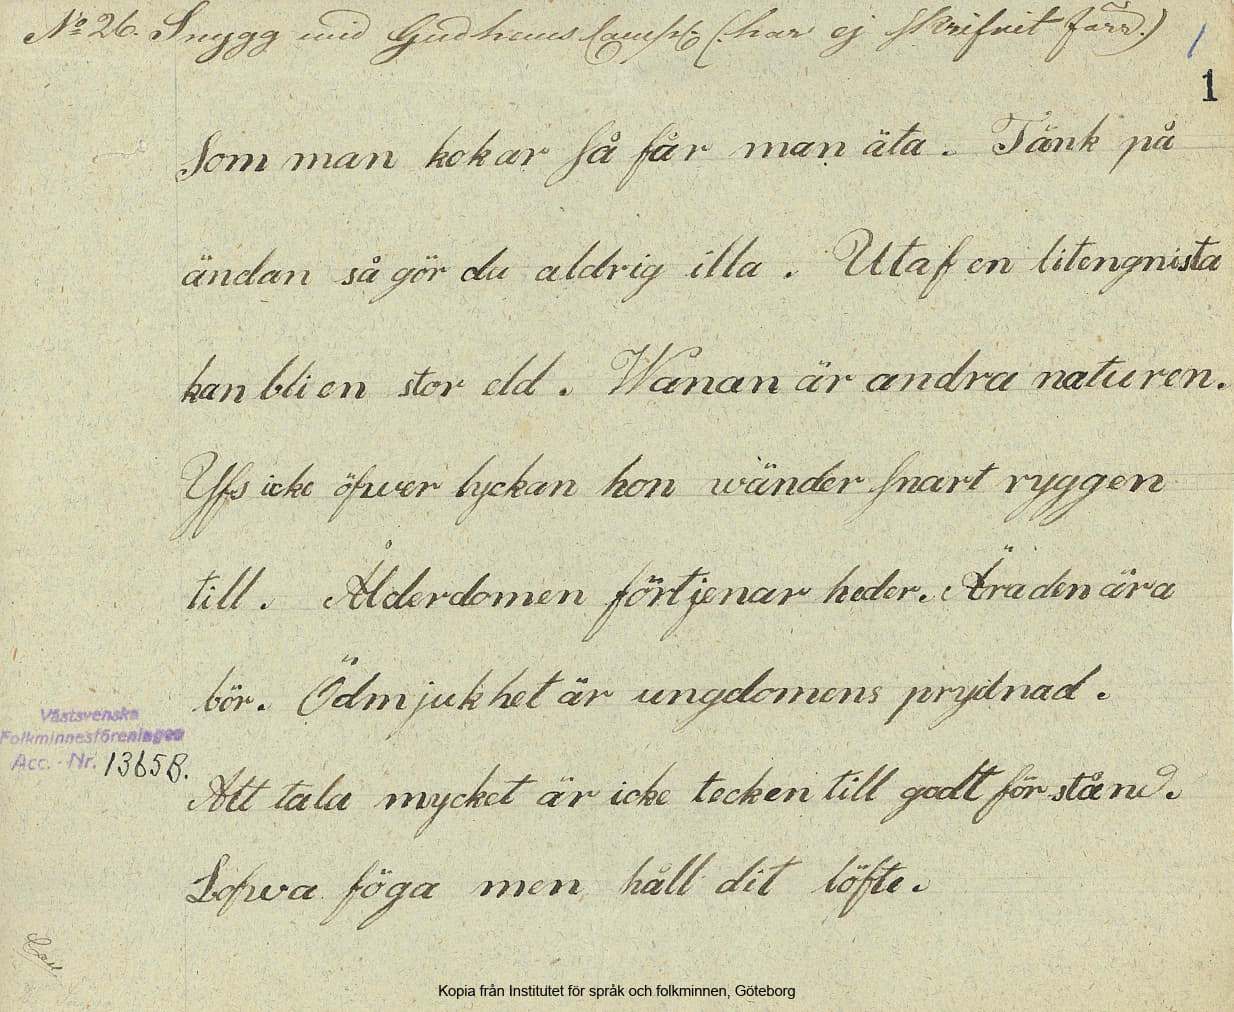 No 26. Snygg vid Gudhems Comp: (: har ej skrifvit förr.)
1
Som man kokar så får man äta. Tänk på
ändan så gör du aldrig illa. Utaf en litengnista
kan bli en stor eld. Wanan är andra naturen.
Yfs icke öfwer lyckan hon wänder snart ryggen
till. Ålderdomen förtjenar heder. Ära den ära
bör. Ödmjukhet är ungdomens prydnad.
Västsvenska
Folkminnesföreningen
Acc. - Nr. 13658.
Att tala mycket är icke tecken till godt förstånd.
Lofwa föga men håll dit löfte.
Kopia från Institutet för språk och folkminnen, Göteborg